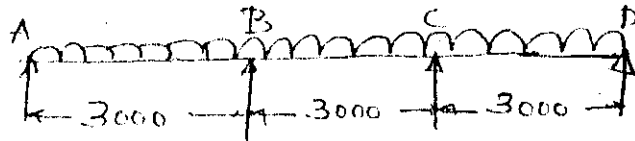 A B C D
3000 3000 3000